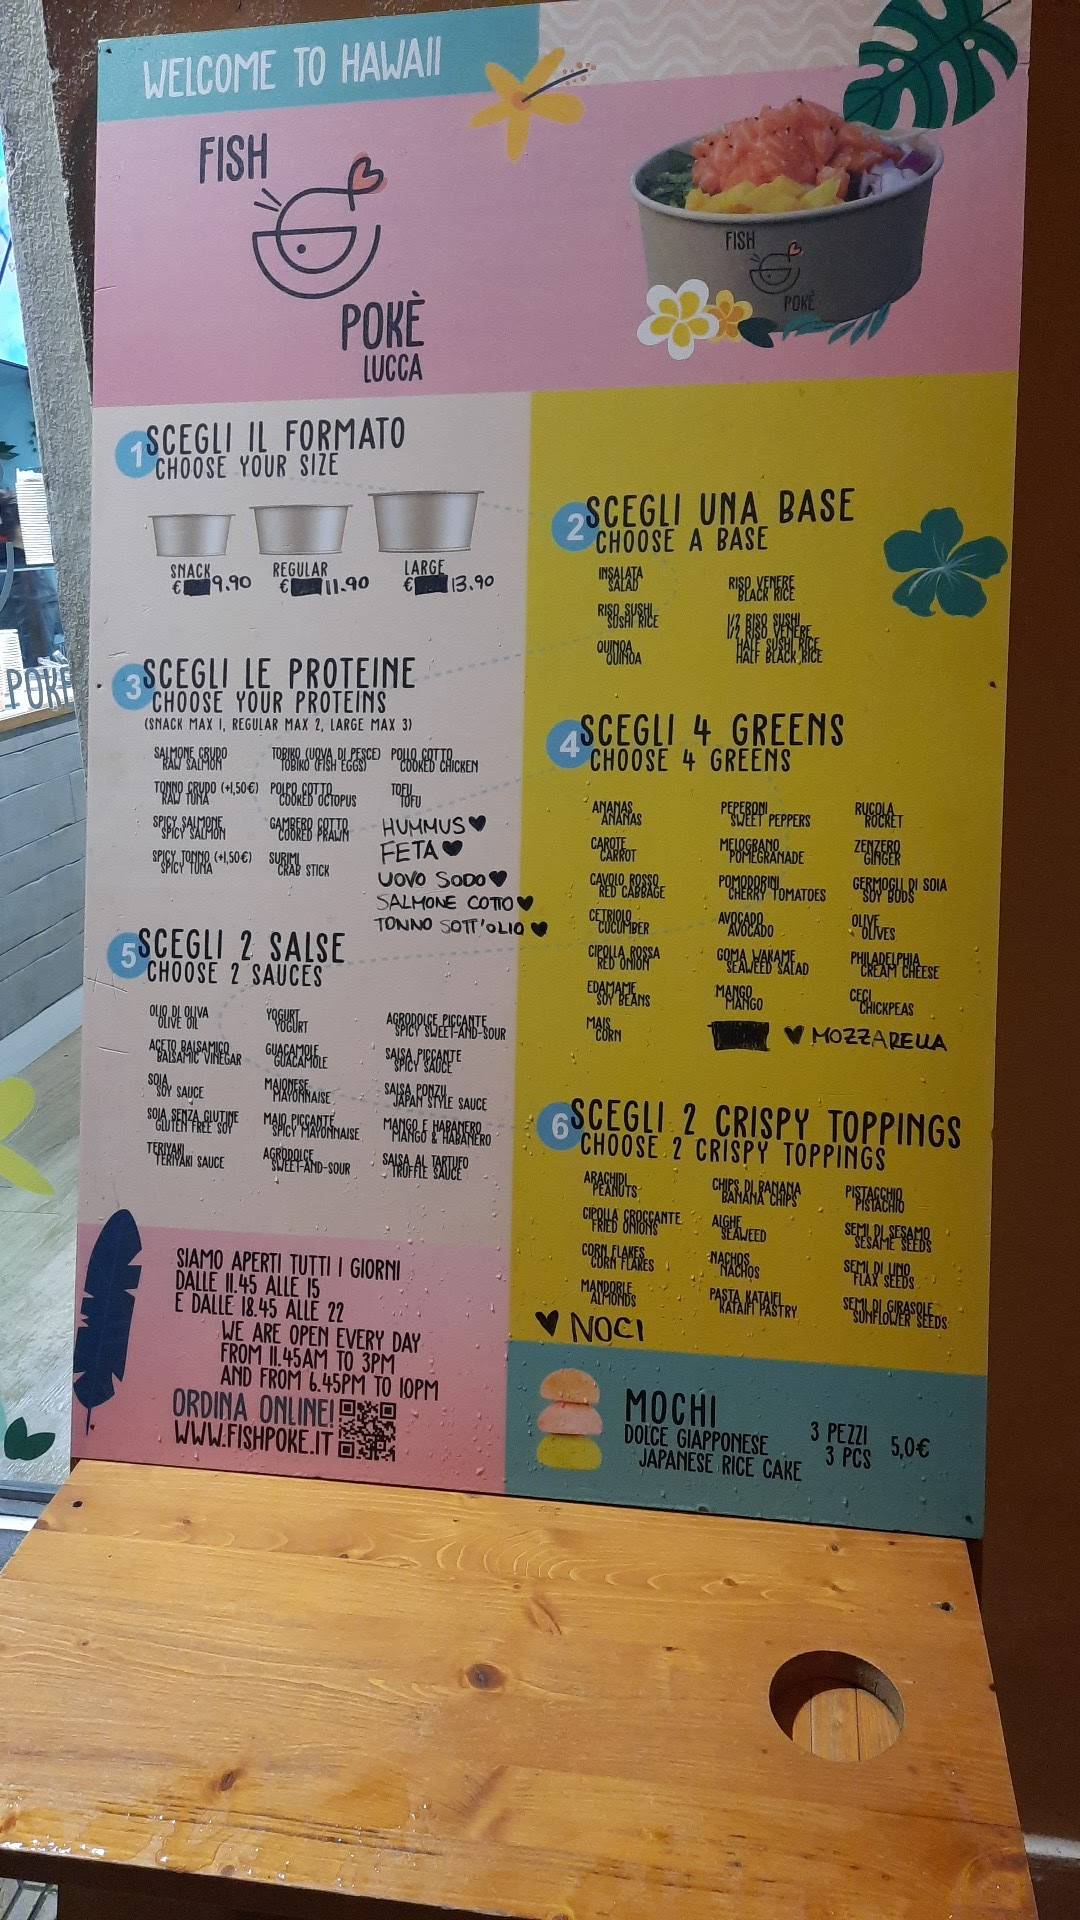 WELCOME TO HAWAII
FISH
POKÈ
LUCCA
FISH
POKÈ
1 SCEGLI IL FORMATO
CHOOSE YOUR SIZE
SNACK
€ 9.90
REGULAR
€ 11.90
LARGE
€ 13.90
2 SCEGLI UNA BASE
CHOOSE A BASE
INSALATA
SALAD
RISO SUSHI
SUSHI RICE
QUINOA
QUINOA
RISO VENERE
BLACK RICE
1/2 RISO SUSHI
1/2 RISO VENERE
HALF SUSHI RICE
HALF BLACK RICE
3 SCEGLI LE PROTEINE
CHOOSE YOUR PROTEINS
(SNACK MAX 1, REGULAR MAX 2, LARGE MAX 3)
SALMONE CRUDO
RAW SALMON
TONNO CRUDO (+1,50€)
RAW TUNA
SPICY SALMONE
SPICY SALMON
SPICY TONNO (+1,50€)
SPICY TUNA
TOBIKO (UOVA DI PESCE)
TOBIKO (FISH EGGS)
POLPO COTTO
COOKED OCTOPUS
GAMBERO COTTO
COOKED PRAWN
SURIMI
CRAB STICK
POLLO COTTO
COOKED CHICKEN
TOFU
TOFU
HUMMUS ♥
FETA ♥
UOVO SODO ♥
SALMONE COTTO ♥
TONNO SOTT'OLIO ♥
4 SCEGLI 4 GREENS
CHOOSE 4 GREENS
ANANAS
ANANAS
CAROTE
CARROT
CAVOLO ROSSO
RED CABBAGE
CETRIOLO
CUCUMBER
CIPOLLA ROSSA
RED ONION
EDAMAME
SOY BEANS
MAIS
CORN
PEPERONI
SWEET PEPPERS
MELOGRANO
POMEGRANADE
POMODORINI
CHERRY TOMATOES
AVOCADO
AVOCADO
GOMA WAKAME
SEAWEED SALAD
MANGO
MANGO
RUCOLA
ROCKET
ZENZERO
GINGER
GERMOGLI DI SOIA
SOY BUDS
OLIVE
OLIVES
PHILADELPHIA
CREAM CHEESE
CECI
CHICKPEAS
♥ MOZZARELLA
5 SCEGLI 2 SALSE
CHOOSE 2 SAUCES
OLIO DI OLIVA
OLIVE OIL
ACETO BALSAMICO
BALSAMIC VINEGAR
SOIA
SOY SAUCE
SOIA SENZA GLUTINE
GLUTEN FREE SOY
TERIYAKI
TERIYAKI SAUCE
YOGURT
YOGURT
GUACAMOLE
GUACAMOLE
MAIONESE
MAYONNAISE
MAIO PICCANTE
SPICY MAYONNAISE
AGRODOLCE
SWEET-AND-SOUR
AGRODOLCE PICCANTE
SPICY SWEET-AND-SOUR
SALSA PICCANTE
SPICY SAUCE
SALSA PONZU
JAPAN STYLE SAUCE
MANGO E HABANERO
MANGO & HABANERO
SALSA AL TARTUFO
TRUFFLE SAUCE
6 SCEGLI 2 CRISPY TOPPINGS
CHOOSE 2 CRISPY TOPPINGS
ARACHIDI
PEANUTS
CIPOLLA CROCCANTE
FRIED ONIONS
CORN FLAKES
CORN FLAKES
MANDORLE
ALMONDS
CHIPS DI BANANA
BANANA CHIPS
ALGHE
SEAWEED
NACHOS
NACHOS
PASTA KATAIFI
KATAIFI PASTRY
PISTACCHIO
PISTACHIO
SEMI DI SESAMO
SESAME SEEDS
SEMI DI LINO
FLAX SEEDS
SEMI DI GIRASOLE
SUNFLOWER SEEDS
♥ NOCI
SIAMO APERTI TUTTI I GIORNI
DALLE 11.45 ALLE 15
E DALLE 18.45 ALLE 22
WE ARE OPEN EVERY DAY
FROM 11.45AM TO 3PM
AND FROM 6.45PM TO 10PM
ORDINA ONLINE!
WWW.FISHPOKE.IT
MOCHI
DOLCE GIAPPONESE
JAPANESE RICE CAKE
3 PEZZI
3 PCS
5,0€
POKÈ